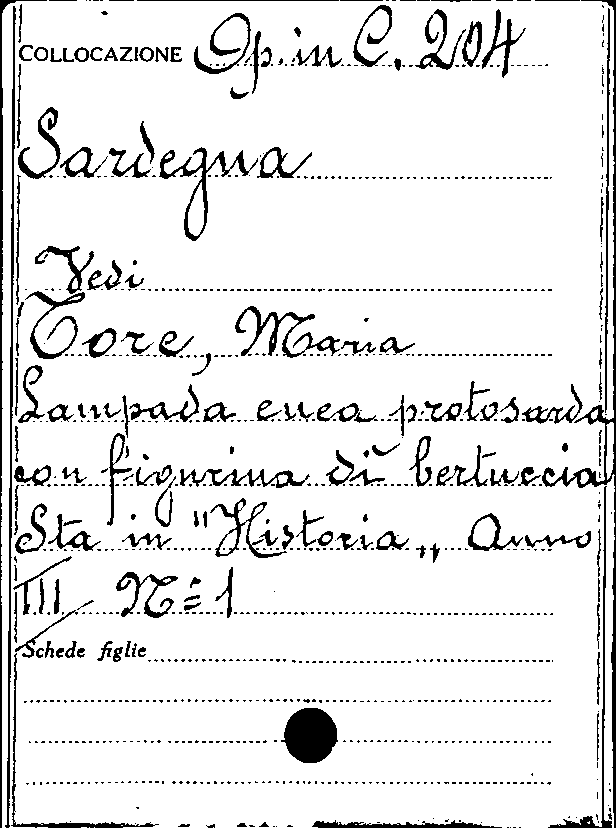 COLLOCAZIONE Op. in C. 204
Sardegna
Vedi
Tore, Maria
Lampada enea protosarda
con figurina di bertuccia
Sta in "Historia„ Anno
III N.º 1
Schede figlie